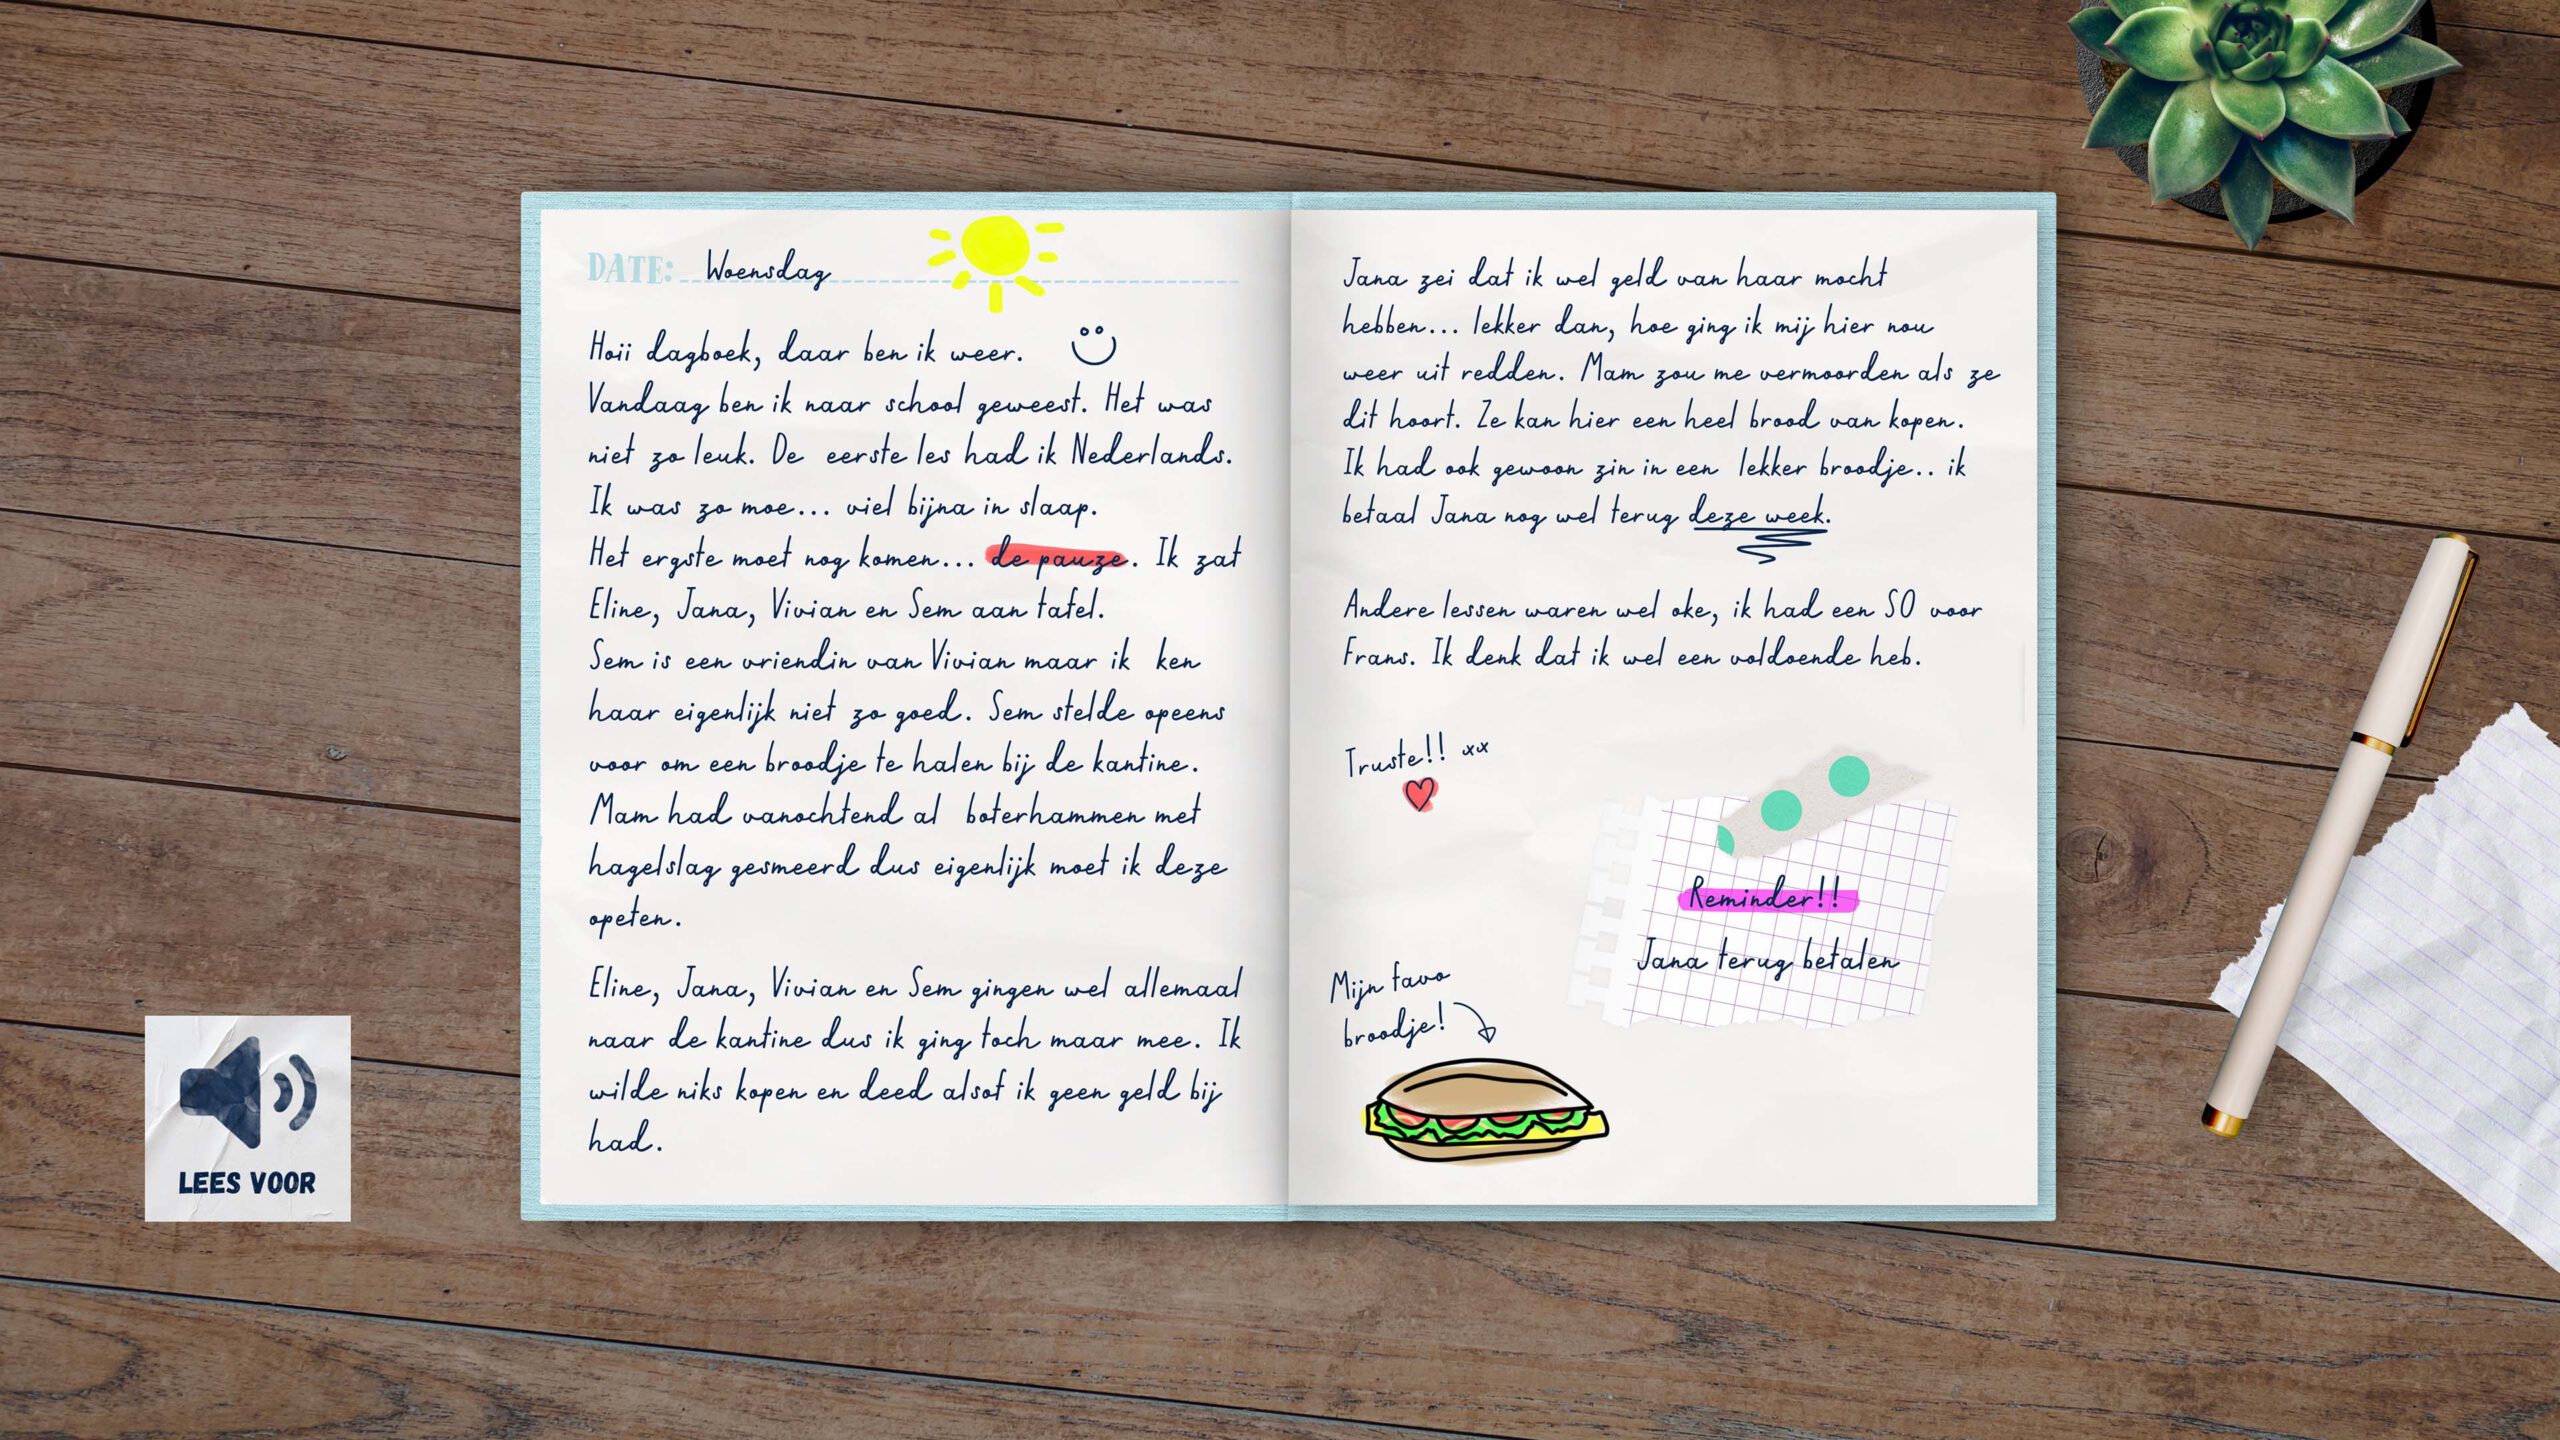 DATE: Woensdag
Hoii dagboek, daar ben ik weer.
Vandaag ben ik naar school geweest. Het was
niet zo leuk. De eerste les had ik Nederlands.
Ik was zo moe... viel bijna in slaap.
Het ergste moet nog komen... de pauze. Ik zat
Eline, Jana, Vivian en Sem aan tafel.
Sem is een vriendin van Vivian maar ik ken
haar eigenlijk niet zo goed. Sem stelde opeens
voor om een broodje te halen bij de kantine.
Mam had vanochtend al boterhammen met
hagelslag gesmeerd dus eigenlijk moet ik deze
opeten.
Eline, Jana, Vivian en Sem gingen wel allemaal
naar de kantine dus ik ging toch maar mee. Ik
wilde niks kopen en deed alsof ik geen geld bij
had.
Jana zei dat ik wel geld van haar mocht
hebben... lekker dan, hoe ging ik mij hier nou
weer uit redden. Mam zou me vermoorden als ze
dit hoort. Ze kan hier een heel brood van kopen.
Ik had ook gewoon zin in een lekker broodje.. ik
betaal Jana nog wel terug deze week.
Andere lessen waren wel oke, ik had een SO voor
Frans. Ik denk dat ik wel een voldoende heb.
Truste!! xx
Reminder!!
Jana terug betalen
Mijn favo
broodje!
LEES VOOR